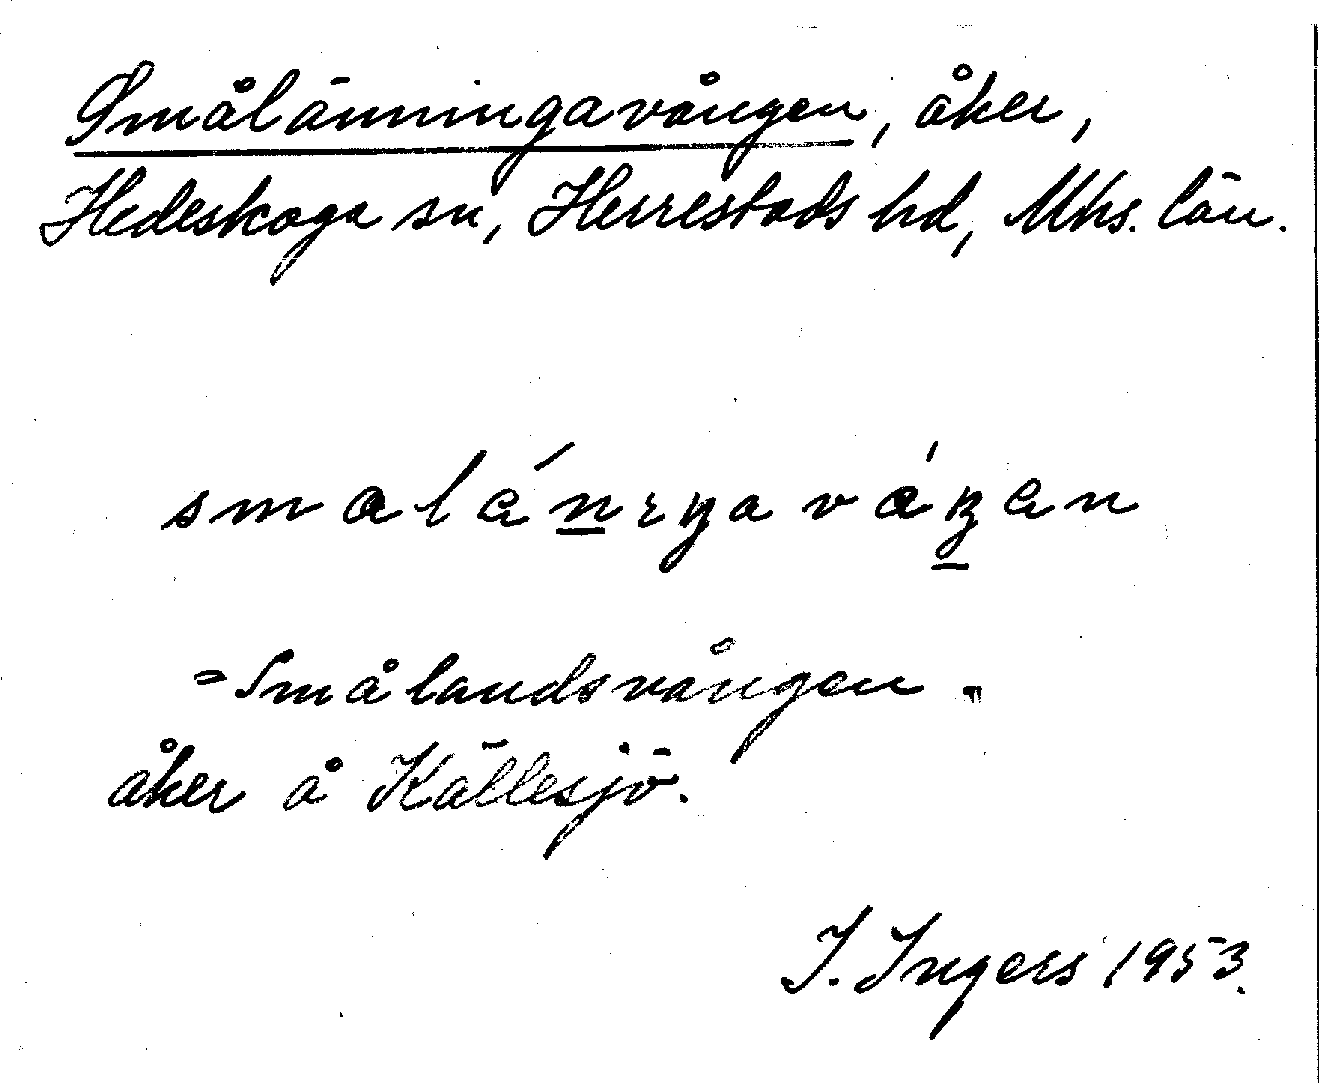 Smålänningavången, åker,
Hedeskoga sn, Herrestads hd, Mhs. län.
smalánıŋaváŋen
= Smålandsvången.
åker å Källesjö.
I. Ingers 1953.